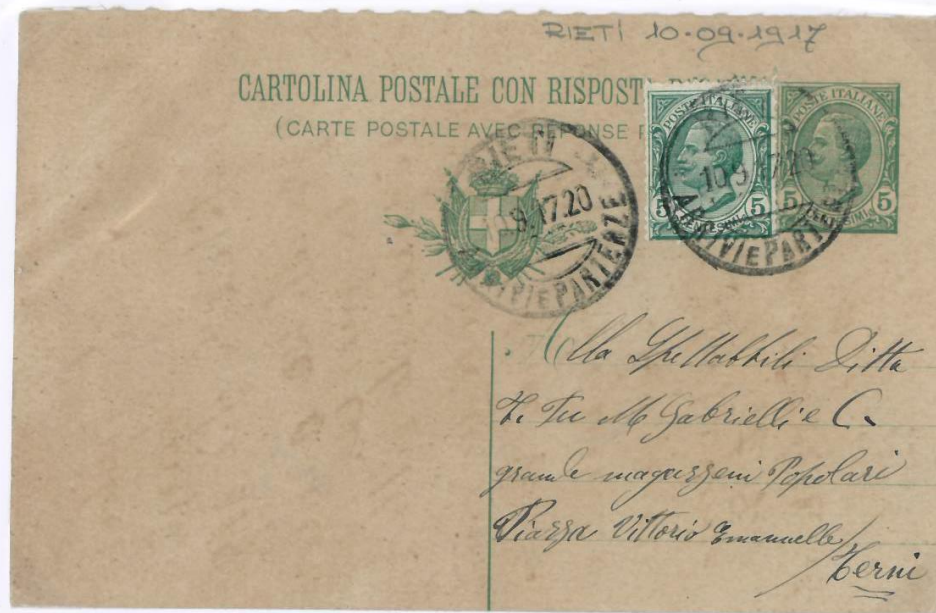 RIETI 10-09-1917
CARTOLINA POSTALE CON RISPOST
(CARTE POSTALE AVEC REPONSE P
POSTE ITALIANE
5 5
CENTESIMI
POSTE ITALIANE
5 5
RIETI
9.17.20
ARRIVI E PARTENZE
10.9.17.20
ARRIVI E PARTENZE
Alla Spettabbili Ditta
F. Fu M Gabrielli e C.
grande magazzeni Popolari
Piazza Vittorio Emanuelle
Terni